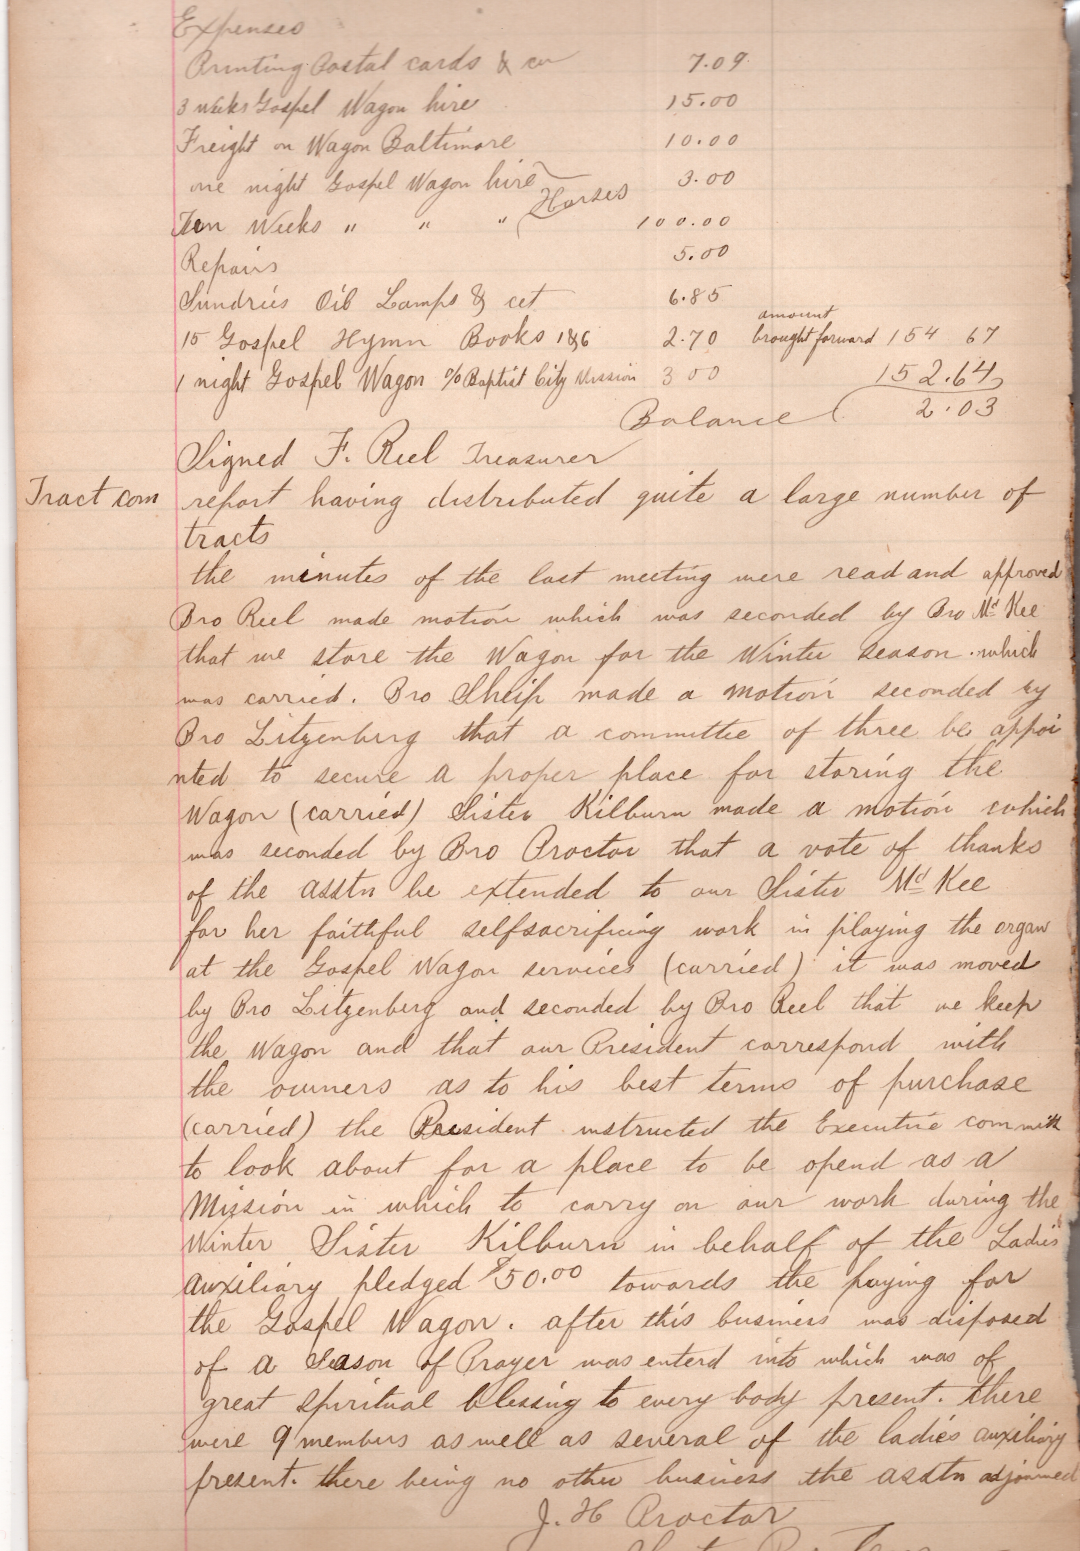 Expenses
Printing Postal cards & c 7.09
3 weeks Gospel Wagon hire 15.00
Freight on Wagon Baltimore 10.00
one night Gospel Wagon hire 3.00
Horses
Ten Weeks " " " 100.00
Repairs 5.00
Sundries Oil Lamps & cet 6.85
amount
15 Gospel Hymn Books 1&6 2.70 brought forward 154 67
1 night Gospel Wagon % Baptist City Mission 3 00 152.64
Balance 2.03
Signed F. Reel Treasurer
Tract com report having distributed quite a large number of
tracts
the minutes of the last meeting were read and approved
Bro Reel made motion which was seconded by Bro Mc Kee
that we store the Wagon for the Winter season. which
was carried. Bro Sheip made a motion seconded by
Bro Litzenberg that a committee of three be appoi
nted to secure a proper place for storing the
Wagon (carried) Sister Kilburn made a motion which
was seconded by Bro Proctor that a vote of thanks
of the asstn be extended to our Sister Mc Kee
for her faithful selfsacrificing work in playing the organ
at the Gospel Wagon services (carried) it was moved
by Bro Litzenberg and seconded by Bro Reel that we keep
the Wagon and that our President correspond with
the owners as to his best terms of purchase
(carried) the President instructed the Executive committe
to look about for a place to be opend as a
Mission in which to carry on our work during the
Winter Sister Kilburn in behalf of the Ladies
auxiliary pledged $50.00 towards the paying for
the Gospel Wagon. after this business was disposed
of a Season of Prayer was enterd into which was of
great spiritual blessing to every body present. there
were 9 members as well as several of the ladies auxiliary
present. there being no other business the asstn adjourned
J. H Proctor